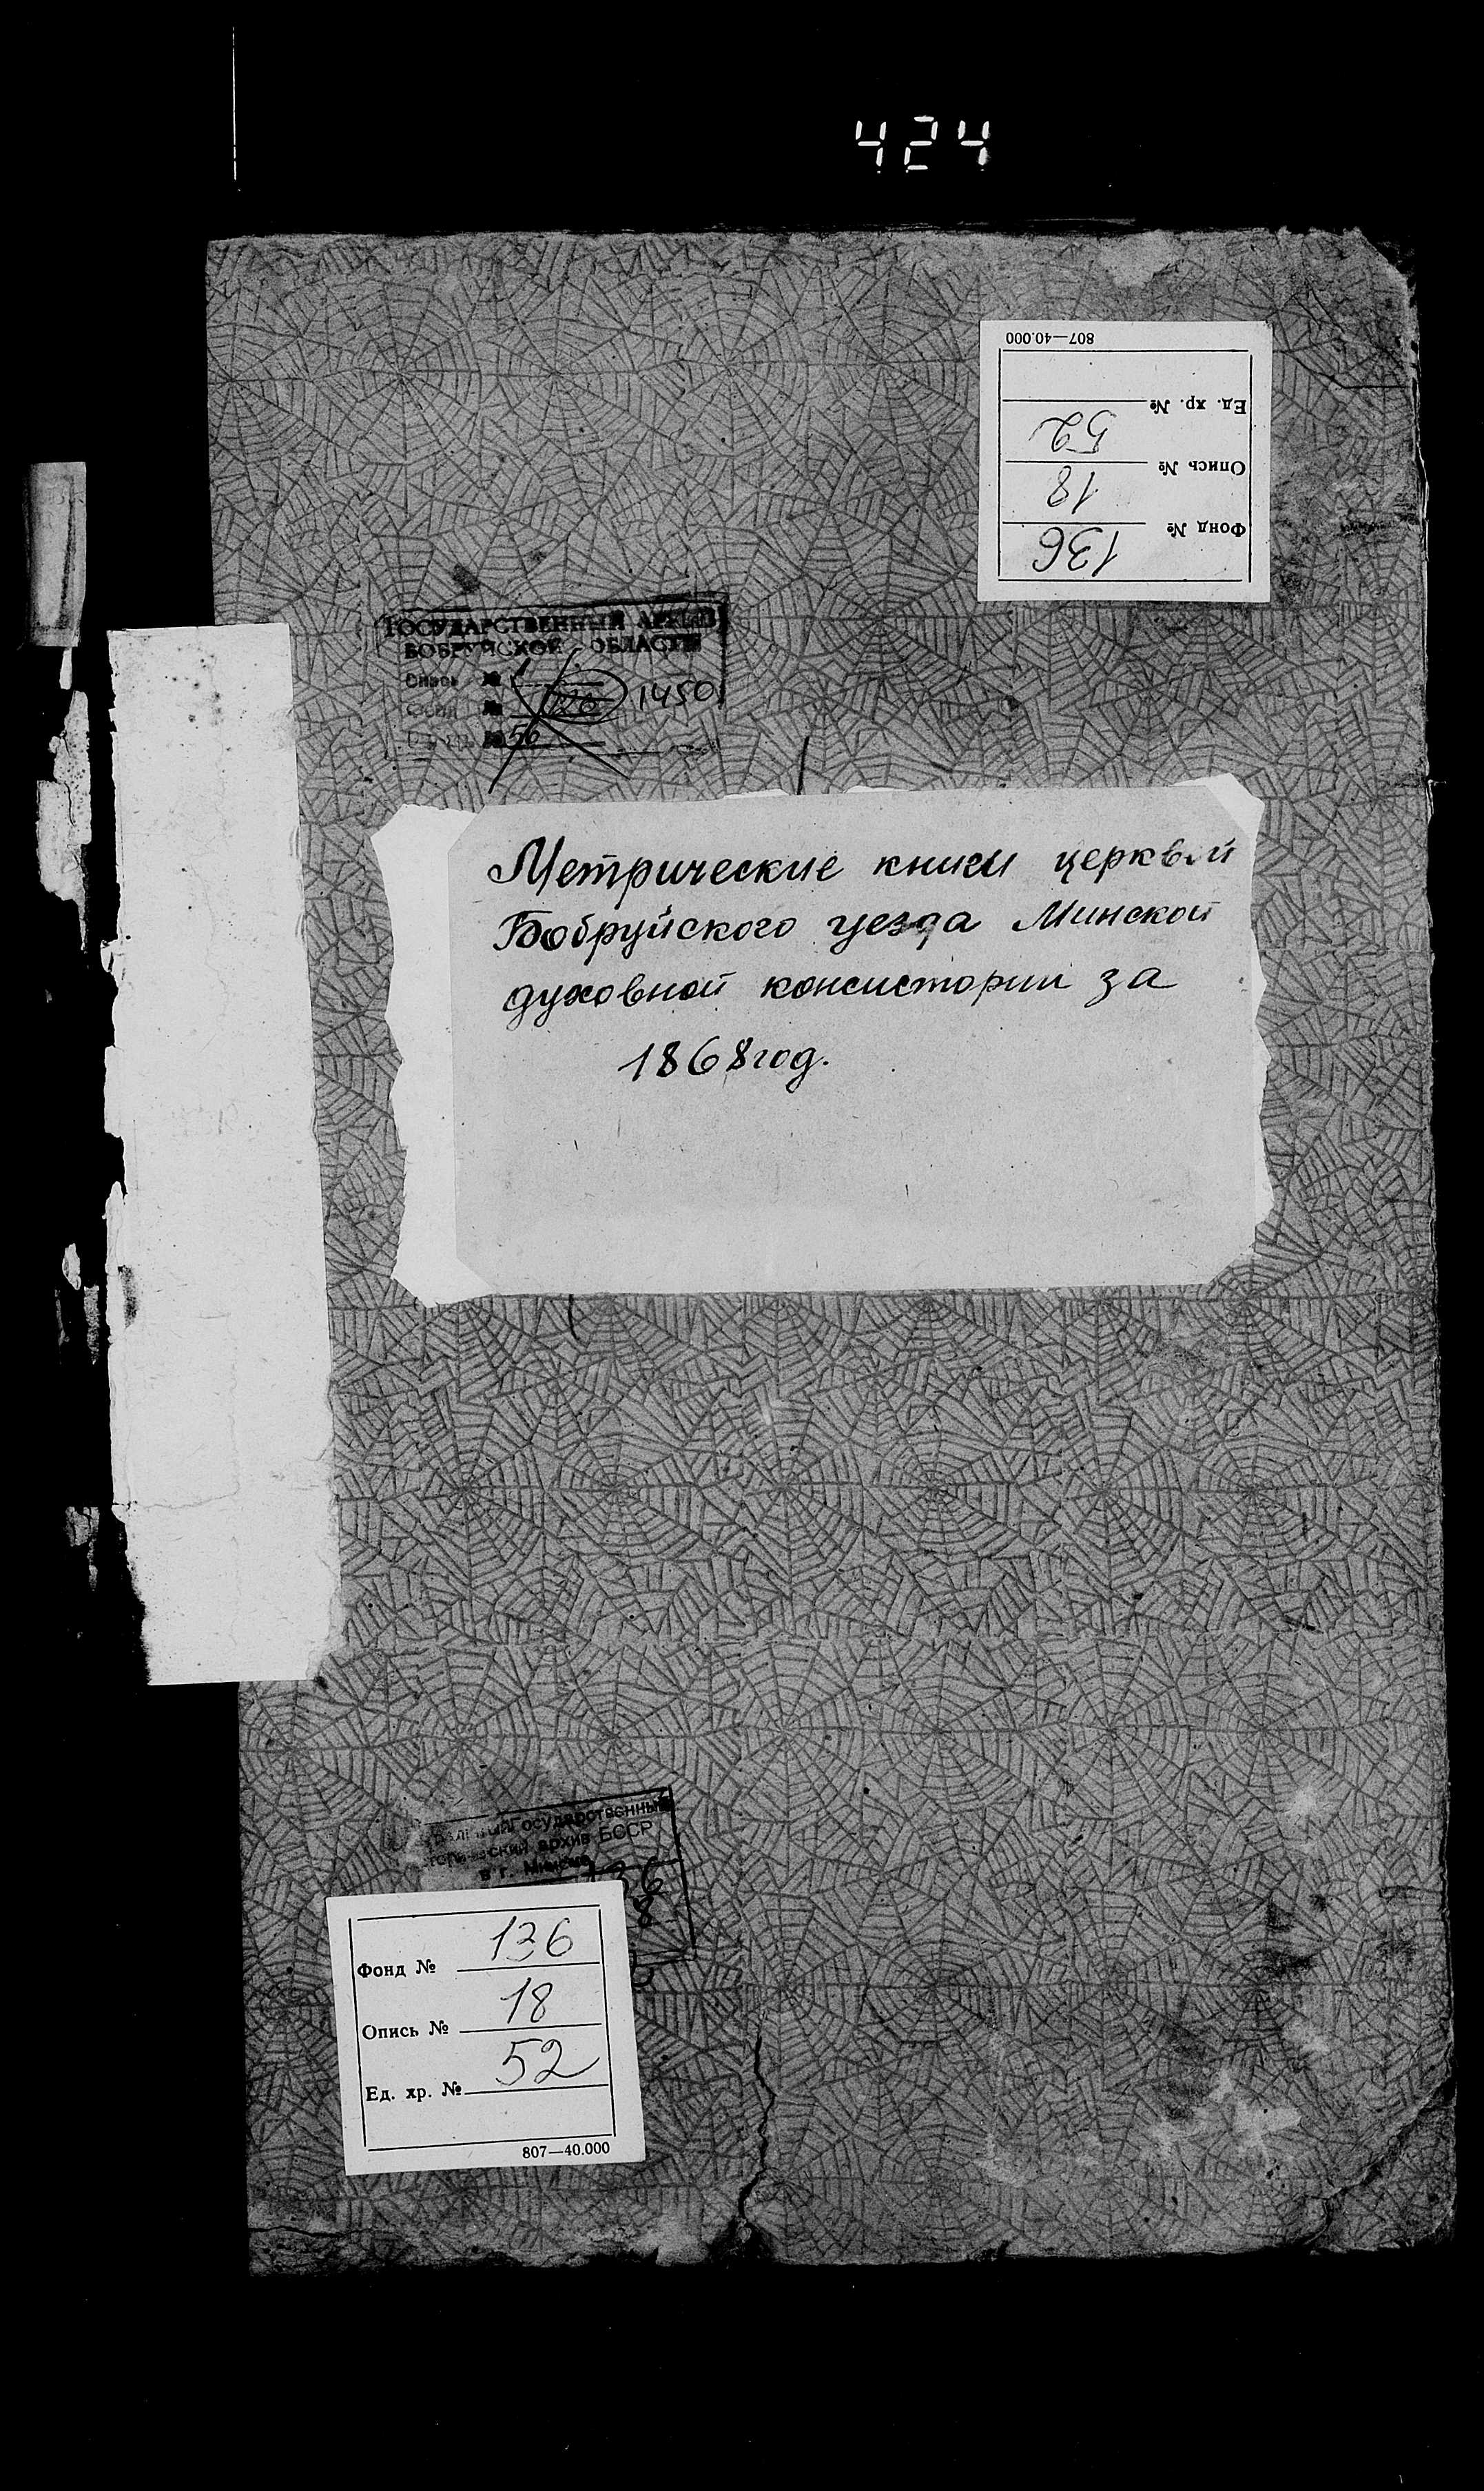 424
807—40.000
Ед. хр. №
52
Опись №
18
Фонд №
136
ГОСУДАРСТВЕННЫЙ АРХИВ
БОБРУЙСКОЙ ОБЛАСТИ
Опись №
Фонд № 1450
Ед. хр. № 56
Метрические книги церквей
Бобруйского уезда Минской
духовной консистории за
1868 год.
Государственный
исторический архив БССР
в г. Минске
136
Фонд № 136
Опись № 18
Ед. хр. № 52
807—40.000